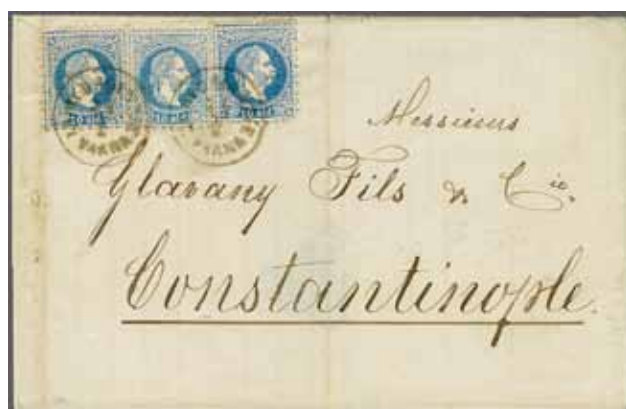 VARNA VARNA
Messieurs
Glavany Fils & Cie.
Constantinople.